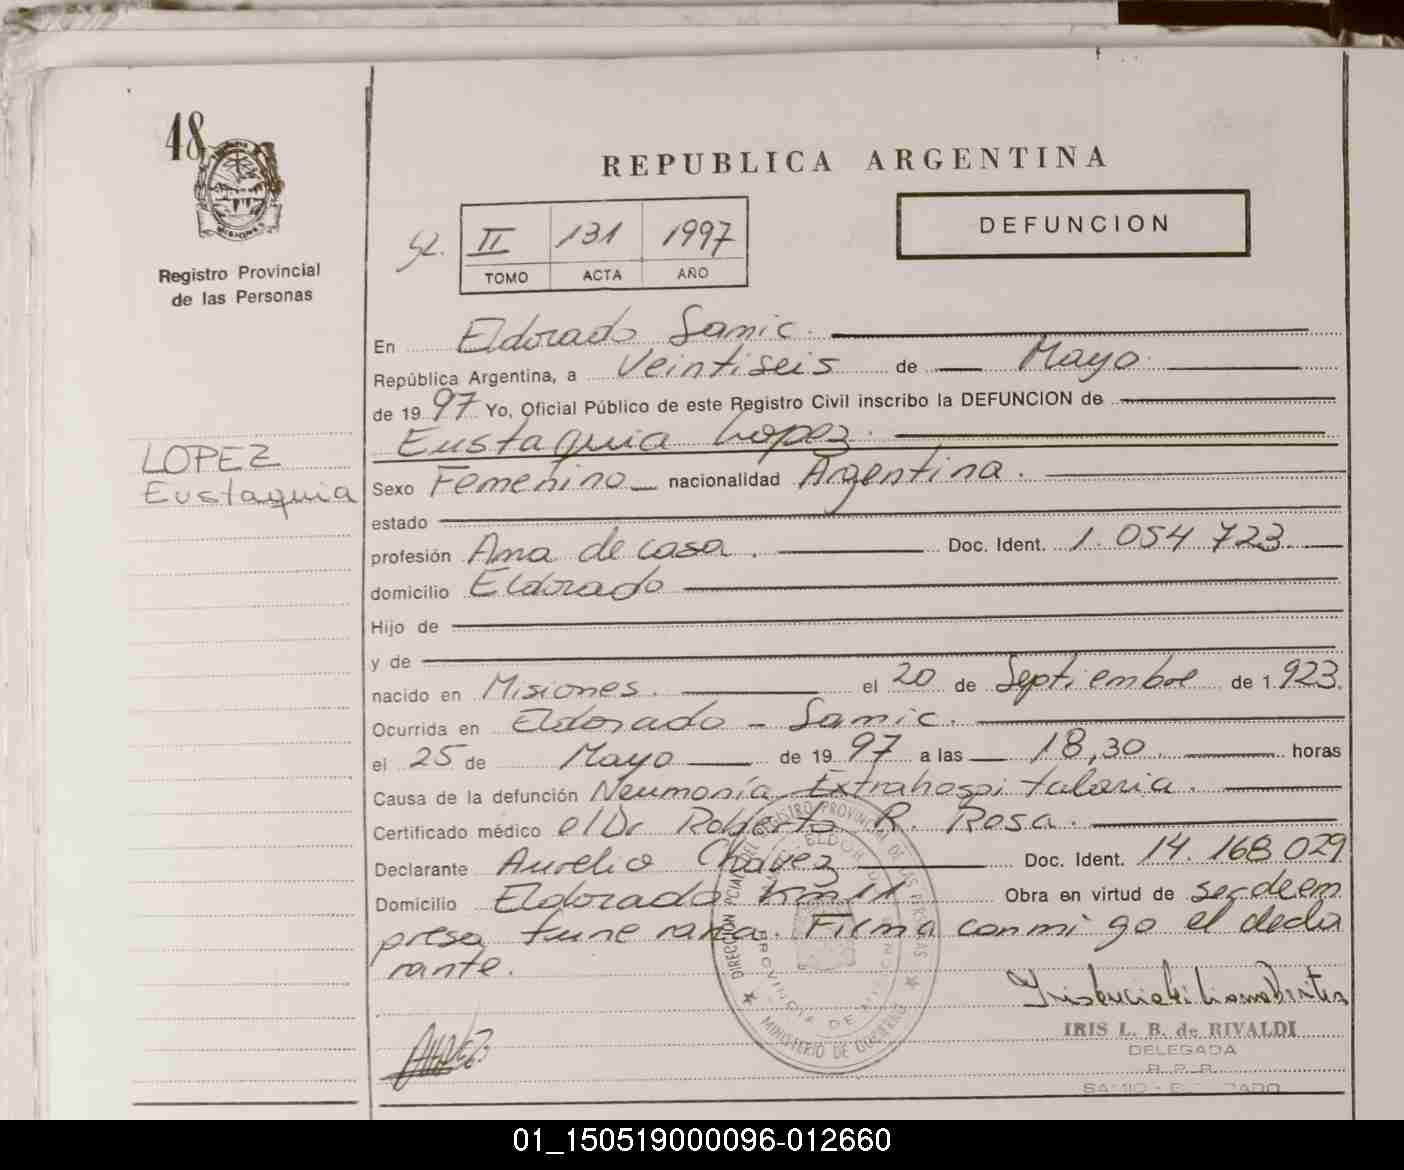 48
REPUBLICA ARGENTINA
DEFUNCION
II 131 1997
TOMO ACTA AÑO
Registro Provincial
de las Personas
En Eldorado Samic.
República Argentina, a Veintiseis de Mayo
de 1997 Yo, Oficial Público de este Registro Civil inscribo la DEFUNCION de
Eustaquia Lopez.
LOPEZ
Eustaquia
Sexo Femenino nacionalidad Argentina.
estado
profesión Ama de casa. Doc. Ident. 1.054 723
domicilio Eldorado
Hijo de
y de
nacido en Misiones. el 20 de Septiembre de 1.923.
Ocurrida en Eldorado - Samic.
el 25 de Mayo de 1997 a las 18,30. horas
Causa de la defunción Neumonía Extrahospitalaria.
Certificado médico el Dr Roberto R. Rosa.
Declarante Aurelio Chavez Doc. Ident. 14.168 029
Domicilio Eldorado Km 11 Obra en virtud de ser de em
presa funeraria. Firma conmigo el decla
rante.
DIRECCION PCIAL DEL REGISTRO PROVINCIAL DE LAS PERSONAS
ELDORADO
PROVINCIA DE MISIONES
MINISTERIO DE GOBIERNO
IRIS L. B. de RIVALDI
DELEGADA
R. P. P.
SAMIC - ELDORADO
01_150519000096-012660